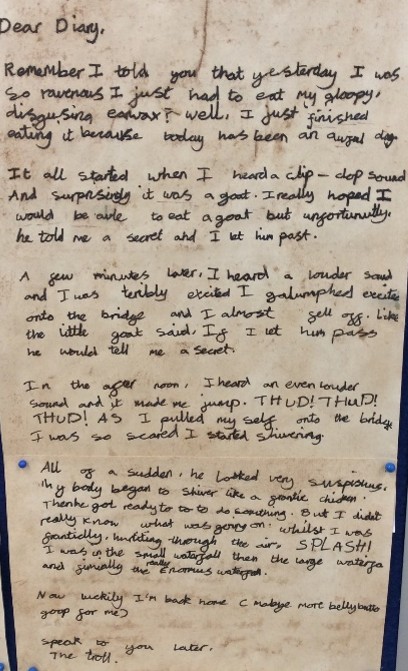 Dear Diary,
Remember I told you that yesterday I was
so ravenous I just had to eat my gloopy,
disgusing earwax? well, I just finished
eating it because today has been an awful day.
It all started when I heard a clip - clop sound
And surprisingly it was a goat. I really hoped I
would be able to eat a goat but unfortunutly,
he told me a secret and I let him past.
A few minutes later, I heard a louder sound
and I was teribly excited I galumphed
onto the bridge and I almost fell off. Like
the little goat said, If I let him pass
he would tell me a secret.
In the after noon, I heard an even louder
sound and it made me jump. THUD! THUD!
THUD! AS I pulled my self onto the bridge
I was so scared I started shivering.
All of a sudden, he looked very suspisius.
My body began to shiver like a frantic chicken.
Then he got ready to to to do something. But I didnt
really know what was going on. whilst I was
frantielly, hurtiling through the air, SPLASH!
I was in the small waterfall then the large waterfa
and finially the really Enormus waterfall.
Now luckily I'm back home ( mabye more bellybutto
goop for me)
speak to you later.
The troll.